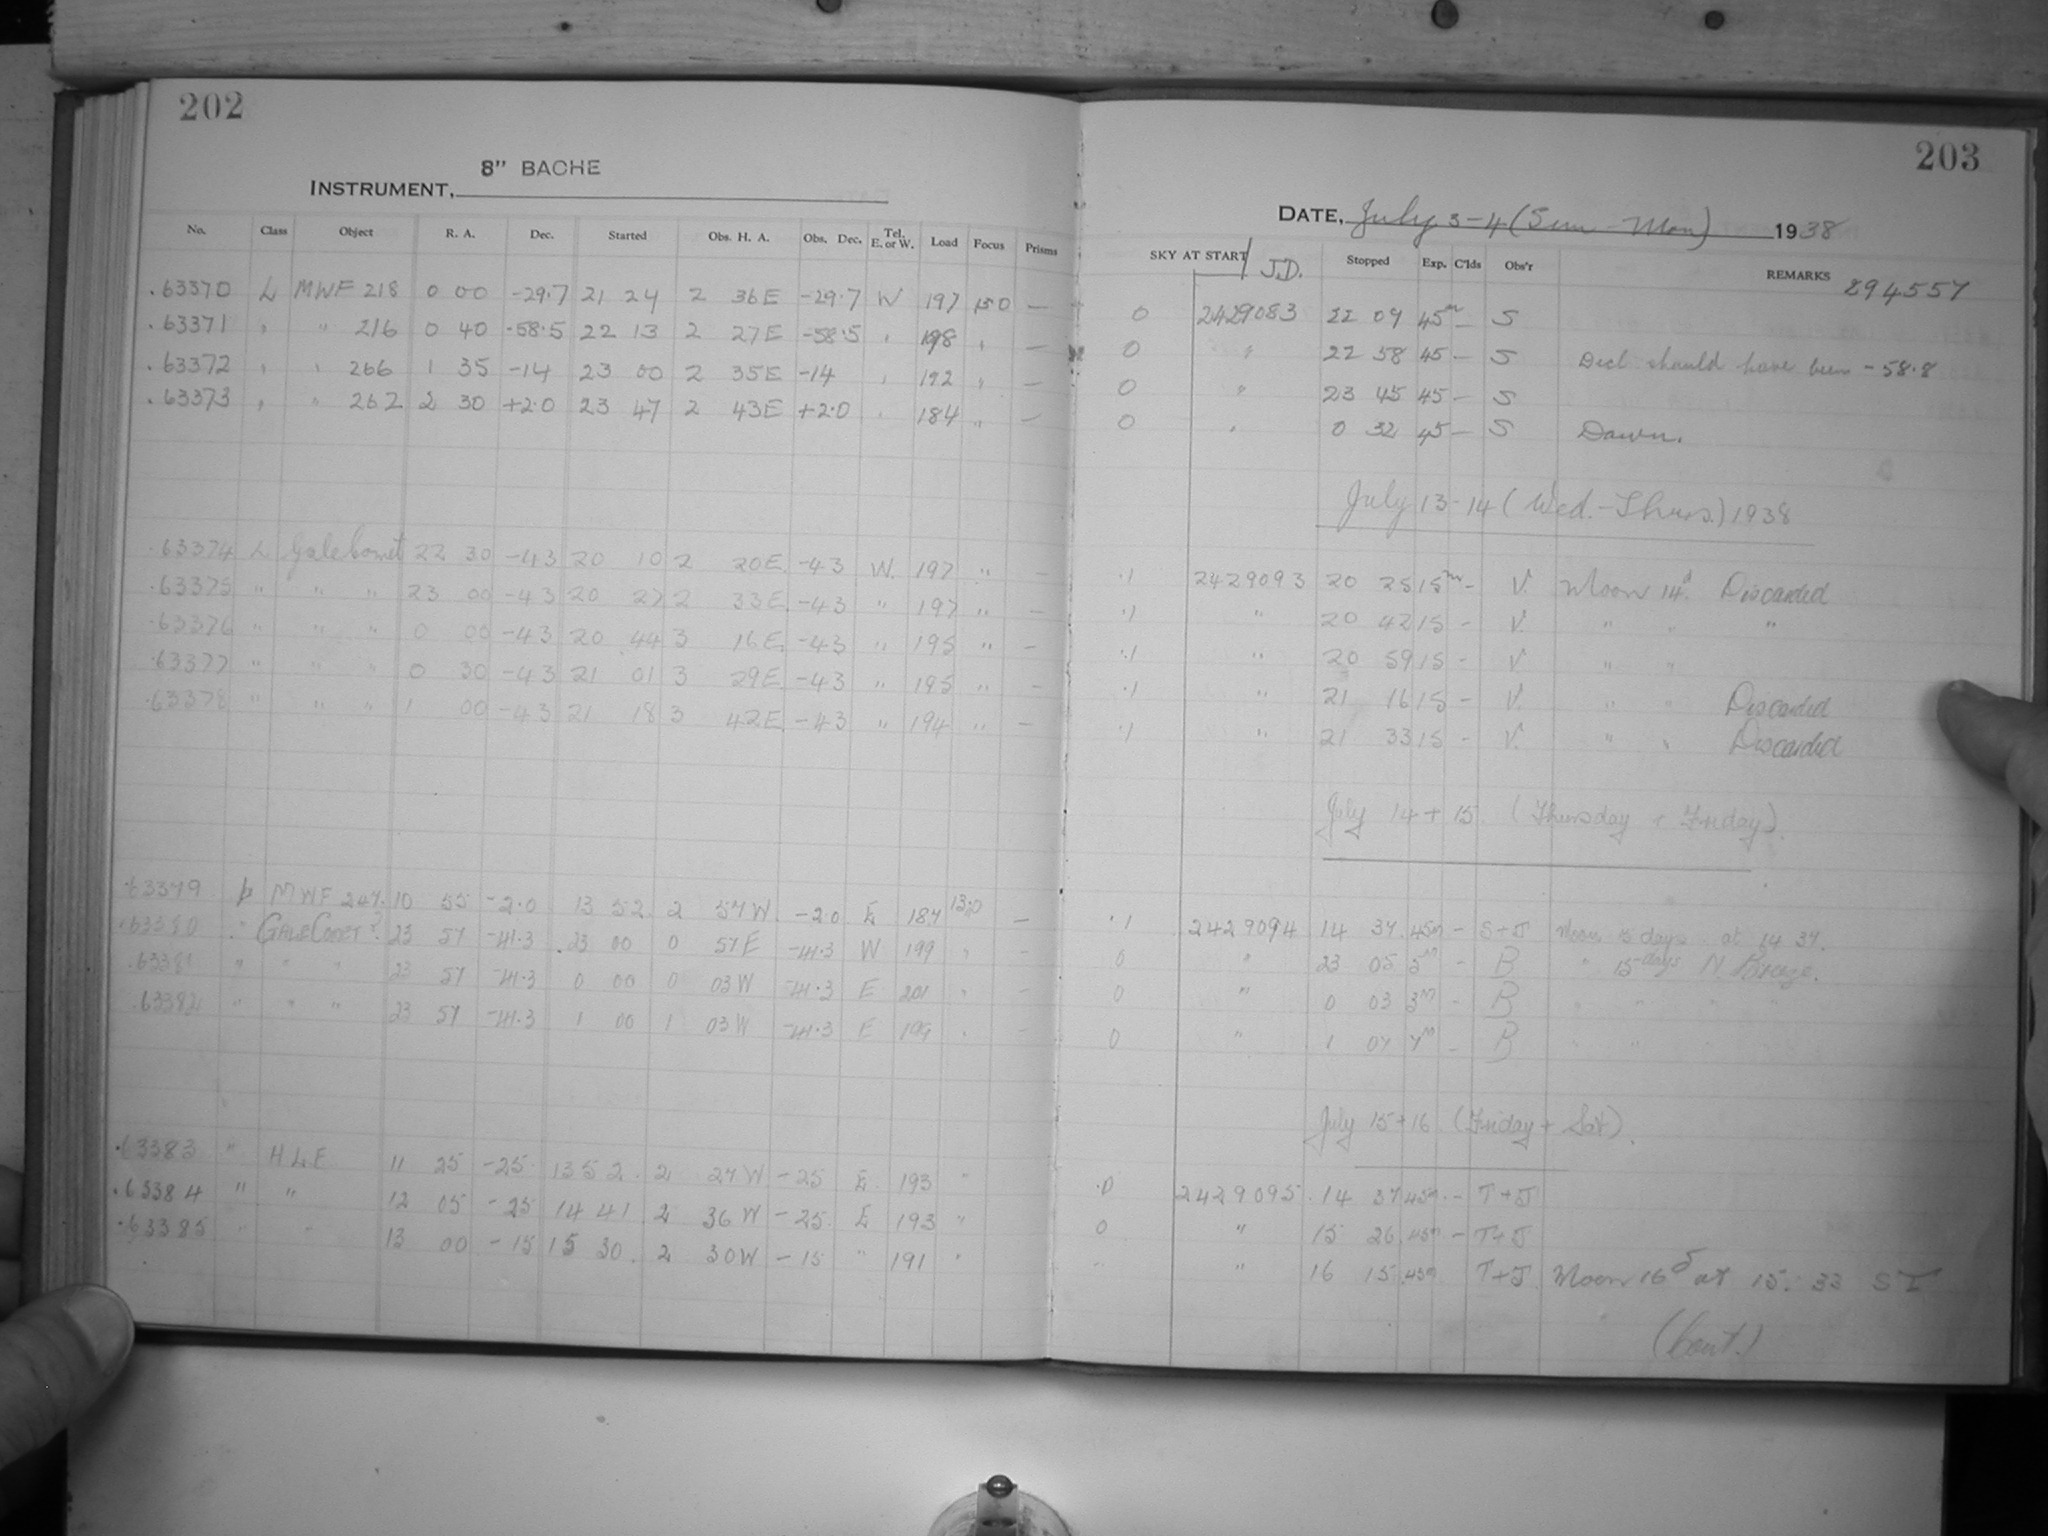 202
8" BACHE
INSTRUMENT,
No. Class Object R. A. Dec. Started Obs. H. A. Obs. Dec. Tel. E. or W. Load Focus Prisms
.63370 L MWF 218 0 00 -29.7 21 24 2 36E -29.7 W 197 150 —
.63371 " " 216 0 40 -58.5 22 13 2 27E -58.5 " 198 " —
.63372 " " 266 1 35 -14 23 00 2 35E -14 " 192 " —
.63373 " " 262 2 30 +2.0 23 47 2 43E +2.0 " 184 " —
.63374 L Gale Comet 22 30 -43 20 10 2 20E -43 W. 197 " —
.63375 " " " 23 00 -43 20 27 2 33E -43 " 197 " —
.63376 " " " 0 00 -43 20 44 3 16E -43 " 195 " —
.63377 " " " 0 30 -43 21 01 3 29E -43 " 195 " —
.63378 " " " 1 00 -43 21 18 3 42E -43 " 194 " —
.63379 b MWF 247 10 55 -2.0 13 52 2 57W -2.0 E 187 —
.63380 " GALE COMET? 23 57 -41.3 23 00 0 57E -41.3 W 199 " —
.63381 " " " 23 57 -41.3 0 00 0 03W -41.3 E 201 " —
.63382 " " " 23 57 -41.3 1 00 1 03W -41.3 E 199 " —
.63383 " H L E 11 25 -25 13 52 2 27W -25 E 193 "
.63384 " " 12 05 -25 14 41 2 36W -25 E 193 "
.63385 " " 13 00 -15 15 30 2 30W -15 " 191 "
203
DATE, July 3-4 (Sun-Mon) 1938
SKY AT START J.D. Stopped Exp. C'lds Obs'r REMARKS 294557
0 2429083 22 09 45m — S
0 " 22 58 45 — S Decl should have been -58.8
0 " 23 45 45 — S
0 " 0 32 45 — S Dawn.
July 13-14 (Wed.-Thurs.) 1938
.1 2429093 20 25 15m - V. Moon 14d. Discarded
.1 " 20 42 15 - V. " " "
.1 " 20 59 15 - V " "
.1 " 21 16 15 - V. " " Discarded
.1 " 21 33 15 - V. " " Discarded
July 14 + 15. (Thursday + Friday).
.1 2429094 14 37 45m - S+J Moon 15 days at 14 37.
0 " 23 05 5m - B " 15 days N. Breeze.
0 " 0 03 3m - B " " " "
0 " 1 07 7m - B " " " "
July 15+16 (Friday + Sat).
.0 2429095 14 37 45m - T+J
0 " 15 26 45m - T+J
" " 16 15 45m T+J Moon 16d at 15. 33 ST
(Cont.)